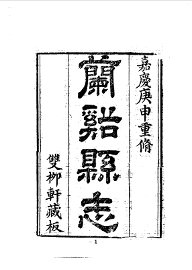 嘉慶庚申重脩
蘭谿縣志
雙柳軒藏板
1